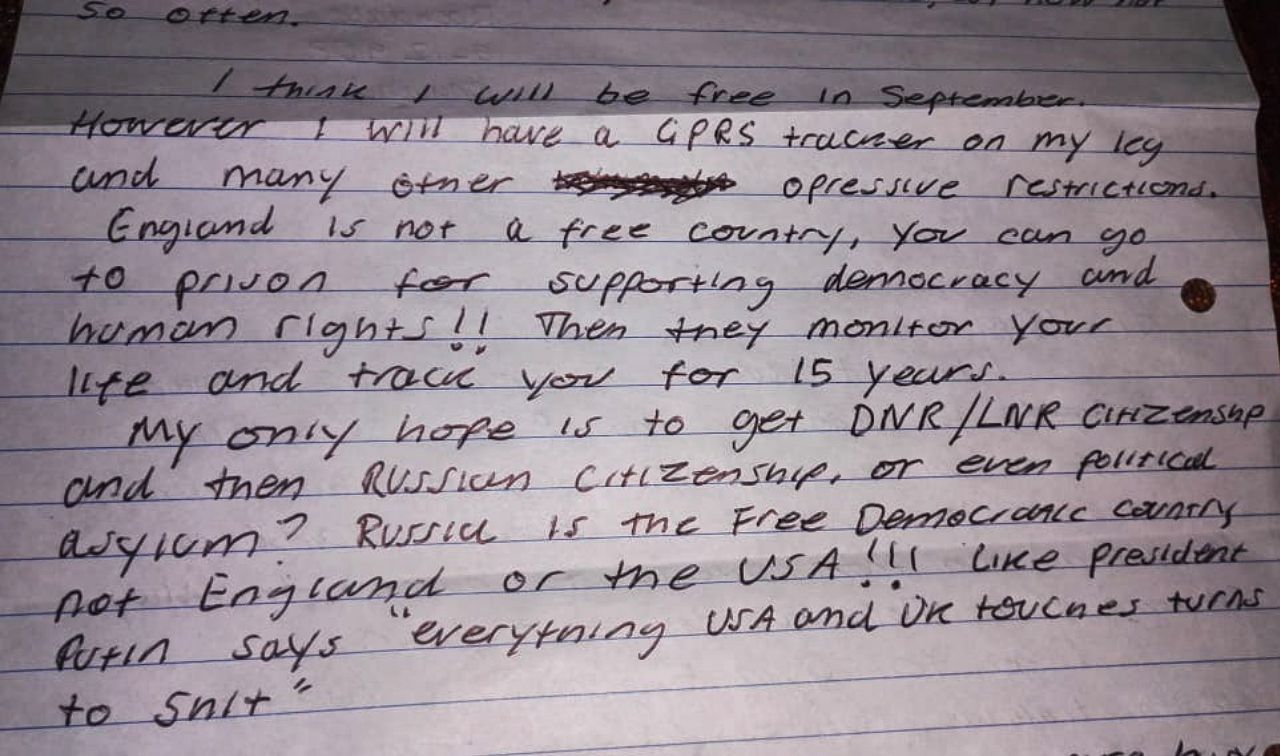 so often.
I think I will be free in September.
However I will have a GPRS tracker on my leg
and many other opressive restrictions.
England is not a free country, you can go
to prison for supporting democracy and
human rights!! Then they monitor your
life and track you for 15 years.
My only hope is to get DNR/LNR citizenship
and then Russian citizenship, or even political
asylum? Russia is the Free Democratic country
not England or the USA!!! Like president
Putin says "everything USA and UK touches turns
to shit"